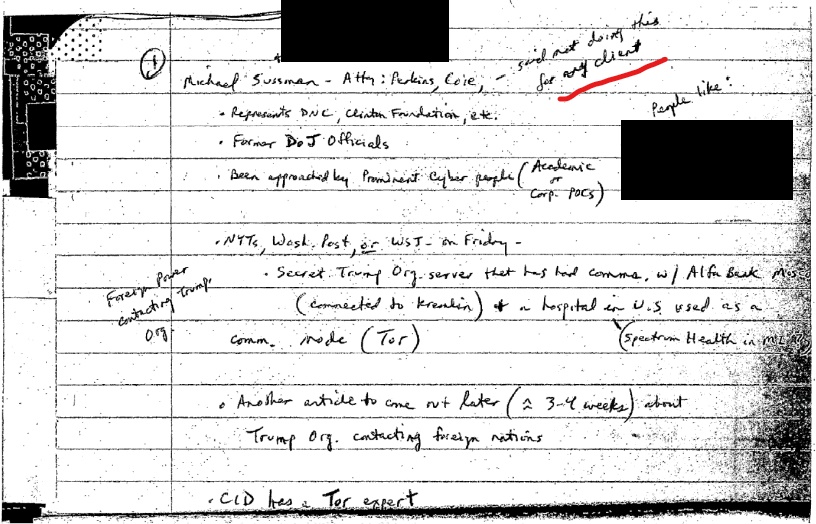 ①
Michael Sussman - Atty: Perkins, Coie, - said not doing this
for any client
People like:
• Represents DNC, Clinton Foundation, etc.
• Former DoJ Officials
• Been approached by Prominent Cyber people (Academic
or
Corp. POCs)
• NYTs, Wash. Post, or WSJ - on Friday -
Foreign Power
contacting Trump.
Org.
• Secret Trump Org. server that has had comms. w/ Alfa Bank
(connected to Kremlin) & a hospital in U.S. used as a
comm. node (Tor)
(Spectrum Health in
• Another article to come out later (≈ 3-4 weeks) about
Trump Org. contacting foreign nations
• CID has a Tor expert